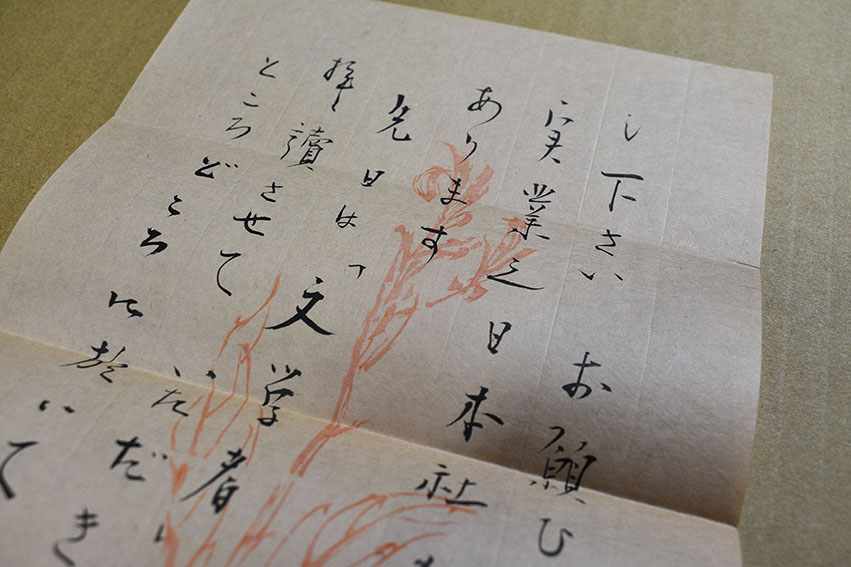 し下さい お願ひ
実業之日本社
あります
先日は「文学者
拝讀させて いただき
ところどころに於いて